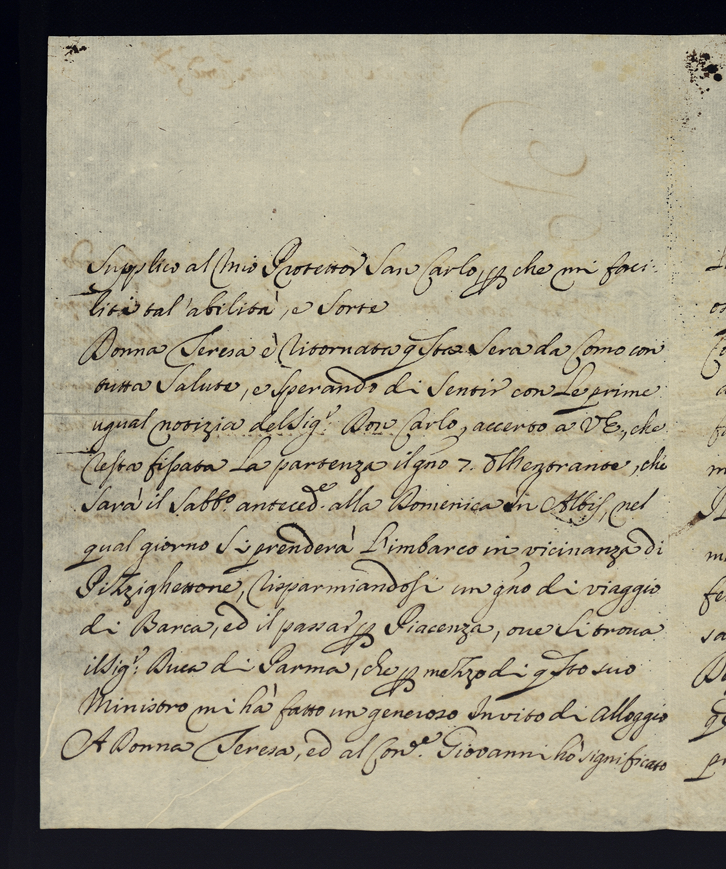 Supplico al mio Protettor San Carlo, pp che mi faci-
liti tal'abilità, e Sorte
Donna Teresa è ritornata qsta Sera da Como con
tutta Salute, e Sperando di Sentir con Le prime
ugual notizia del Sigr. Don Carlo, accerto a VE, che
resta fissata La partenza il gno 7. , che
Sarà il Sabbo. anteced.e alla Domenica in Albis, nel
qual giorno Si prenderà L'imbarco in vicinanza di
Pizzighettone, risparmiandosi un gno di viaggio
di Barca, ed il passar pp Piacenza, ove Si trova
il Sigr. Duca di Parma, che pp mezzo di qsto suo
Ministro mi hà fatto un generoso Invito di Alloggio
A Donna Teresa, ed al Con.e Giovanni hò significato